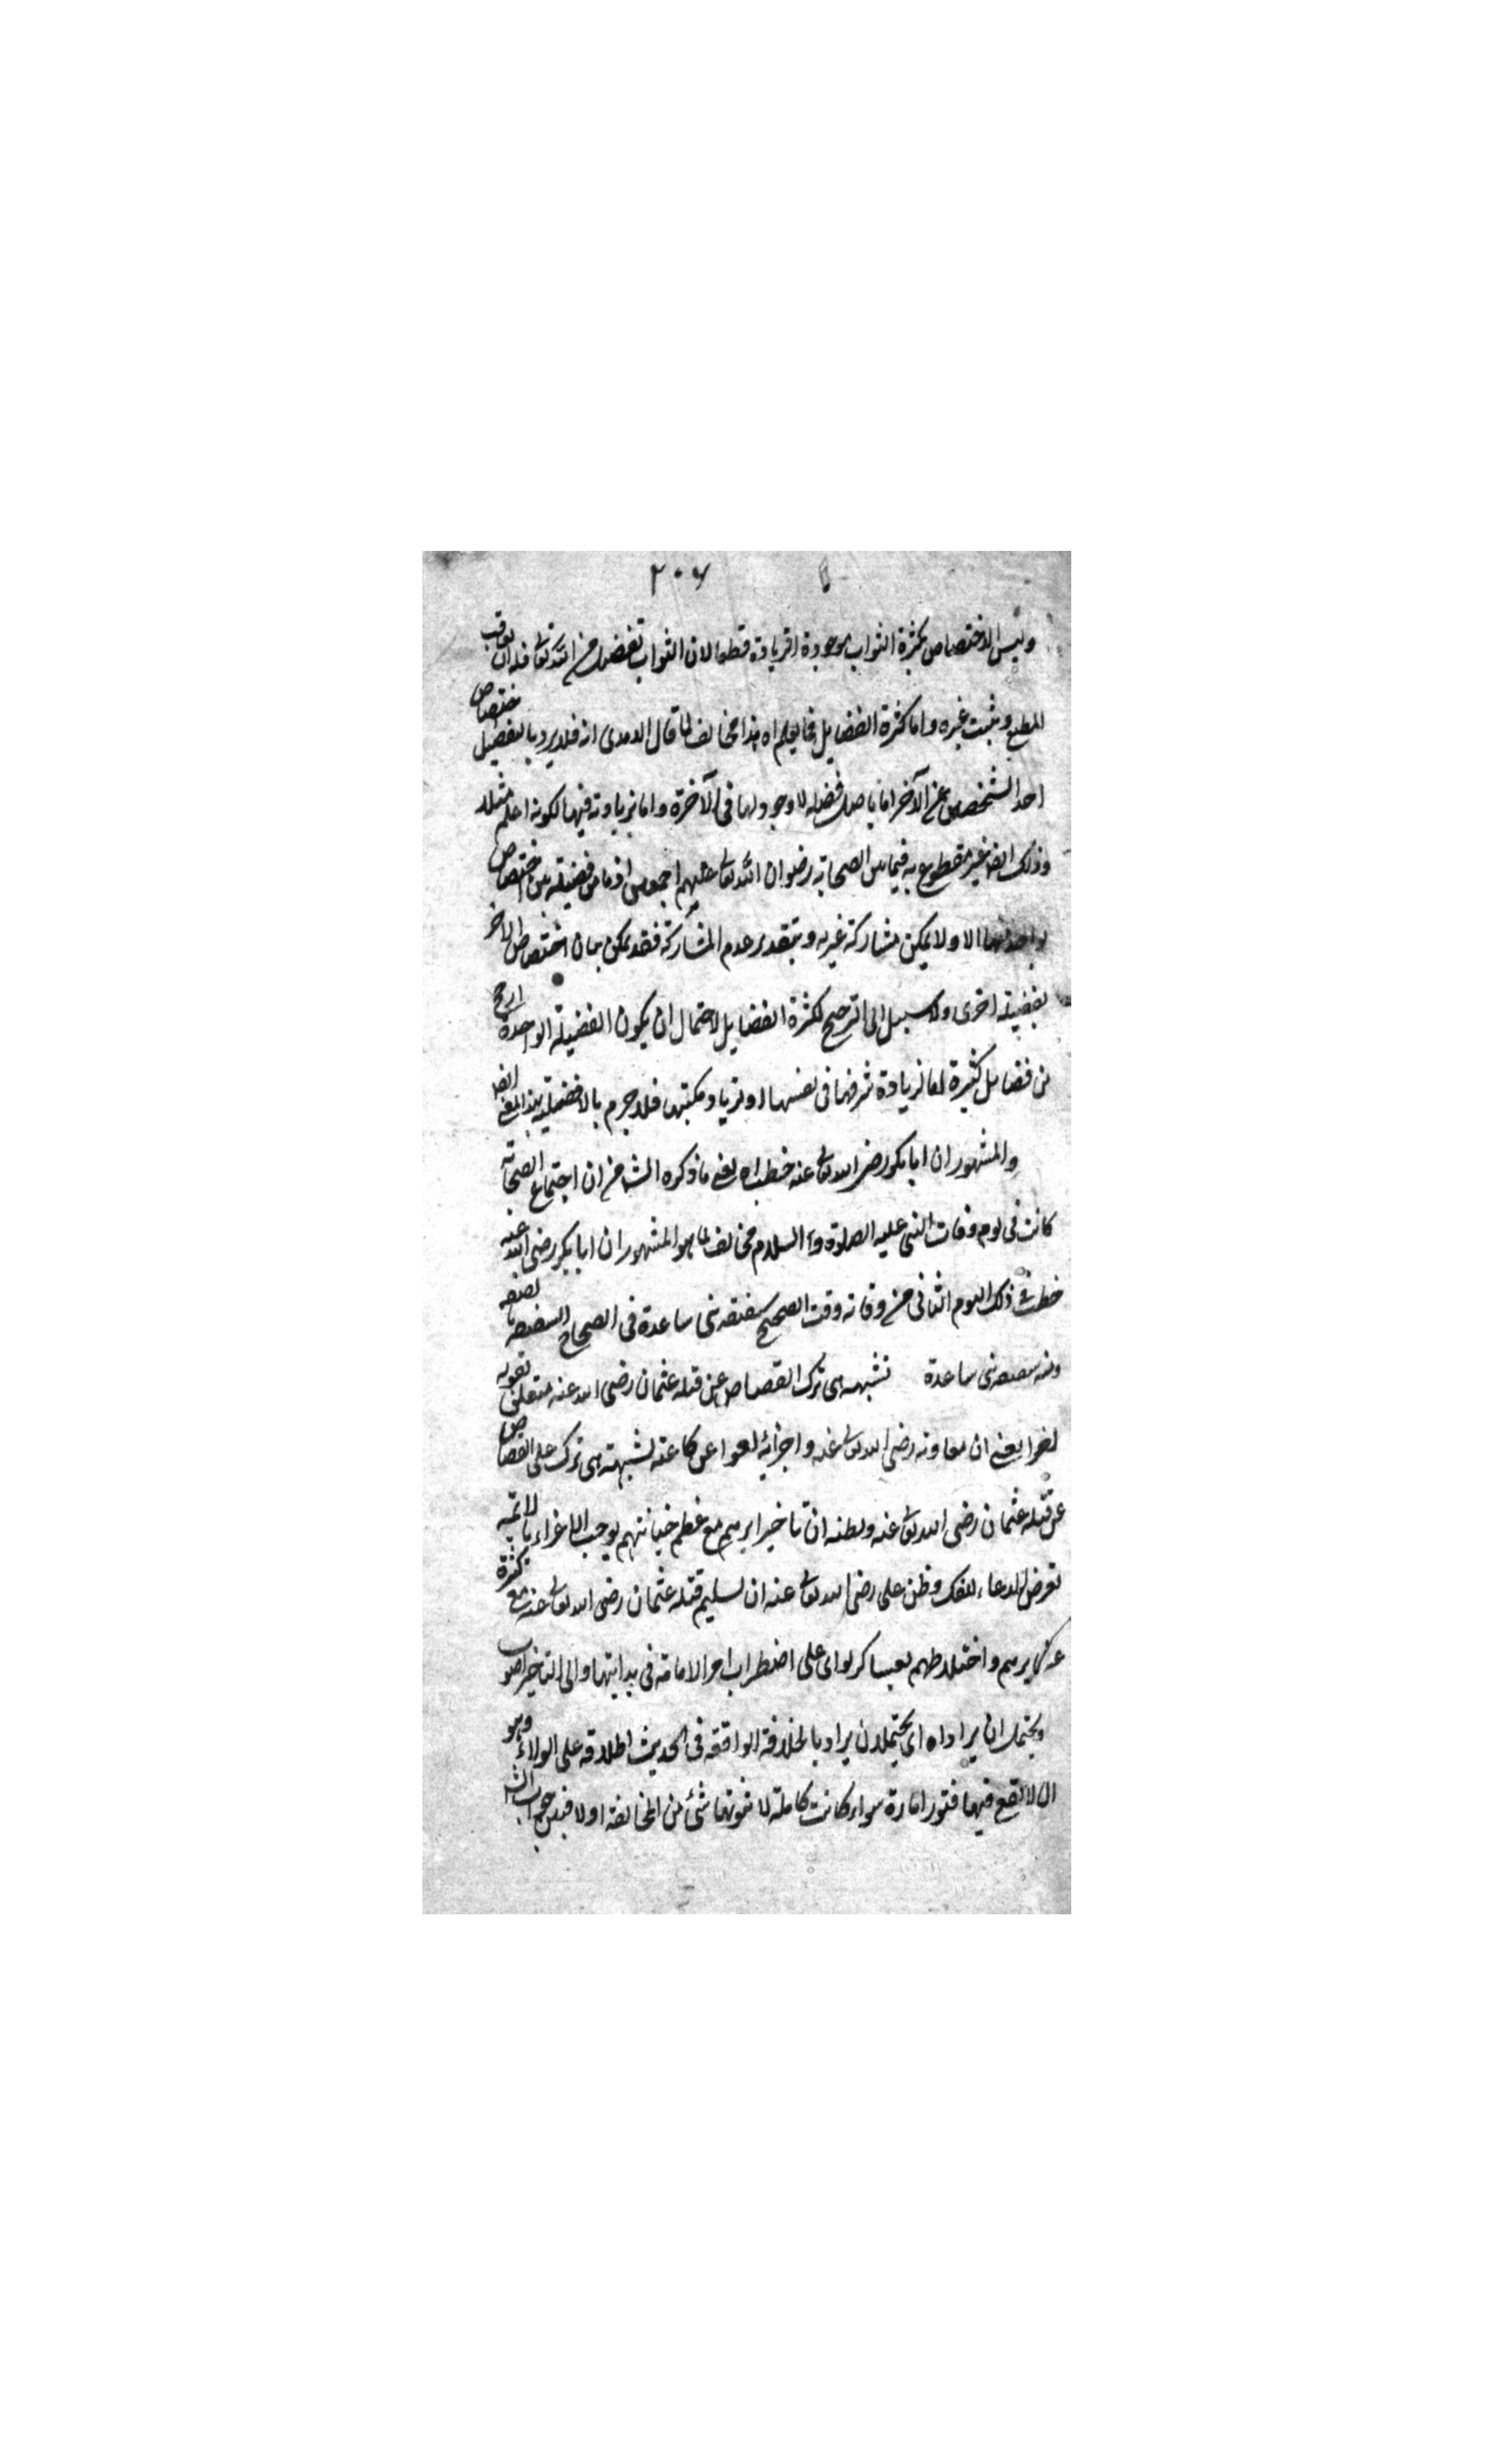 ٢٠٦
وليس الاختصاص بكثرة الثواب موجودة لزيادة قطعا لان الثواب تفضل من الله تعالى فله ان يعاقب
المطيع ويثبت غيره واما كثرة الفضايل فما يعلم اه هذا مخالف لما قال الامدى انه فلا يريد بالتفضيل اختصاص
احد الشخصين عن الآخر اما باصل فضيلة لا وجود لها فى الآخرة واما بزيادته فيها لكونه اعلم مثلا
وذلك ايضا غير مقطوع به فيما بين الصحابة رضوان الله تعالى عليهم اجمعين اذ ما من فضيلة بين اختصاص
واحد منهما الا ولا يمكن مشاركة غيره وبتقدير عدم المشاركة فقد يمكن بيان اختصاص الاخر
بفضيلة اخرى ولا سبيل الى الترجيح لكثرة الفضايل لاحتمال ان يكون الفضيلة الواحدة ارجح
من فضايل كثيرة اما لزيادة شرفها فى نفسها او لزيادة كميتها فلا جرم بالافضلية بهذا المعنى ايضا
والمشهور ان ابا بكر رضى الله تعالى عنه خطب اه يعنى ما ذكره الشا من ان اجتماع الصحابة
كانت فى يوم وفات النبى عليه الصلوة و السلام مخالف لما هو المشهور ان ابا بكر رضى الله عنه
خطب فى ذلك اليوم الثانى من وفاته وقت الصحيح سقيفه بنى ساعدة فى الصحاح السقيفه
ومنه سقيفه بنى ساعدة لشبهه هى ترك القصاص عن قتلة عثمان رضى الله عنه متعلق بقوله
يعنى ان معاويه رضى الله تعالى عنه و لشبهته هى ترك على القصاص
عن قتلة عثمان رضى الله تعالى عنه ولظنه ان تاخير امرهم مع عظم جنايتهم يوجب الاغراء بالائمه
تعرض الدعاء للفك وظن على رضى الله تعالى عنه ان تسليم قتلة عثمان رضى الله تعالى عنه مع كثرة
عشايرهم واختلاطهم بعساكر يؤدى على اضطراب امر الامامة فى بدايتها والى التاخير اصوب
ويحتمل ان يراد اه اى يحتمل ان يراد بالخلافة الواقعة فى الحديث اطلاقه على الولاء وهو
ان لا تقع فيها فتور امارة سواء كانت كاملة لا شئ من المخالفة او لا جواب